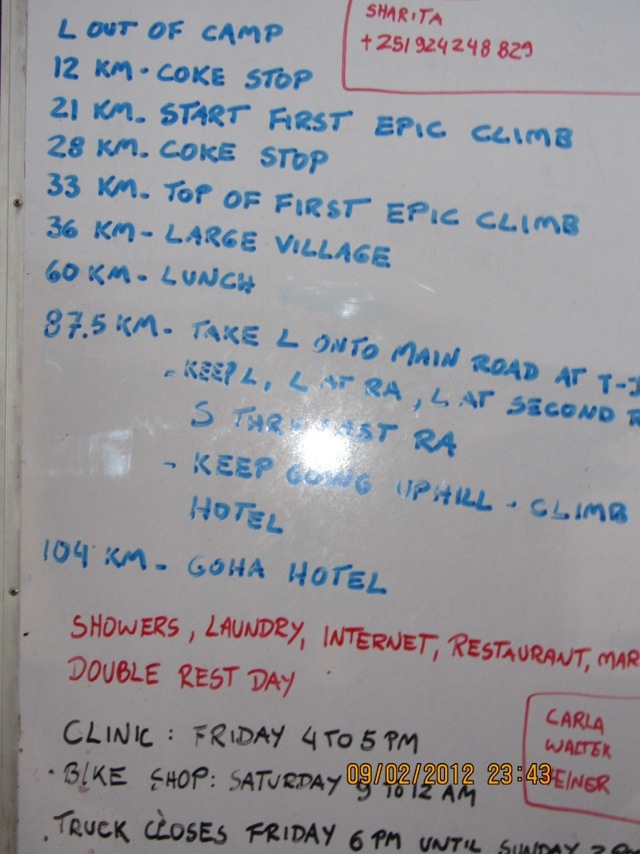 SHARITA
+251 924 248 829
L OUT OF CAMP
12 KM. COKE STOP
21 KM. START FIRST EPIC CLIMB
28 KM. COKE STOP
33 KM. TOP OF FIRST EPIC CLIMB
36 KM - LARGE VILLAGE
60 KM. LUNCH
87.5 KM. TAKE L ONTO MAIN ROAD AT T-J
- KEEP L, L AT RA, L AT SECOND R
S THRU LAST RA
- KEEP GOING UPHILL - CLIMB
HOTEL
104 KM - GOHA HOTEL
SHOWERS, LAUNDRY, INTERNET, RESTAURANT, MAR
DOUBLE REST DAY
CARLA
WALTER
REINER
CLINIC: FRIDAY 4 TO 5 PM
· BIKE SHOP: SATURDAY 9 TO 12 AM
09/02/2012 23:43
. TRUCK CLOSES FRIDAY 6 PM UNTIL SUNDAY